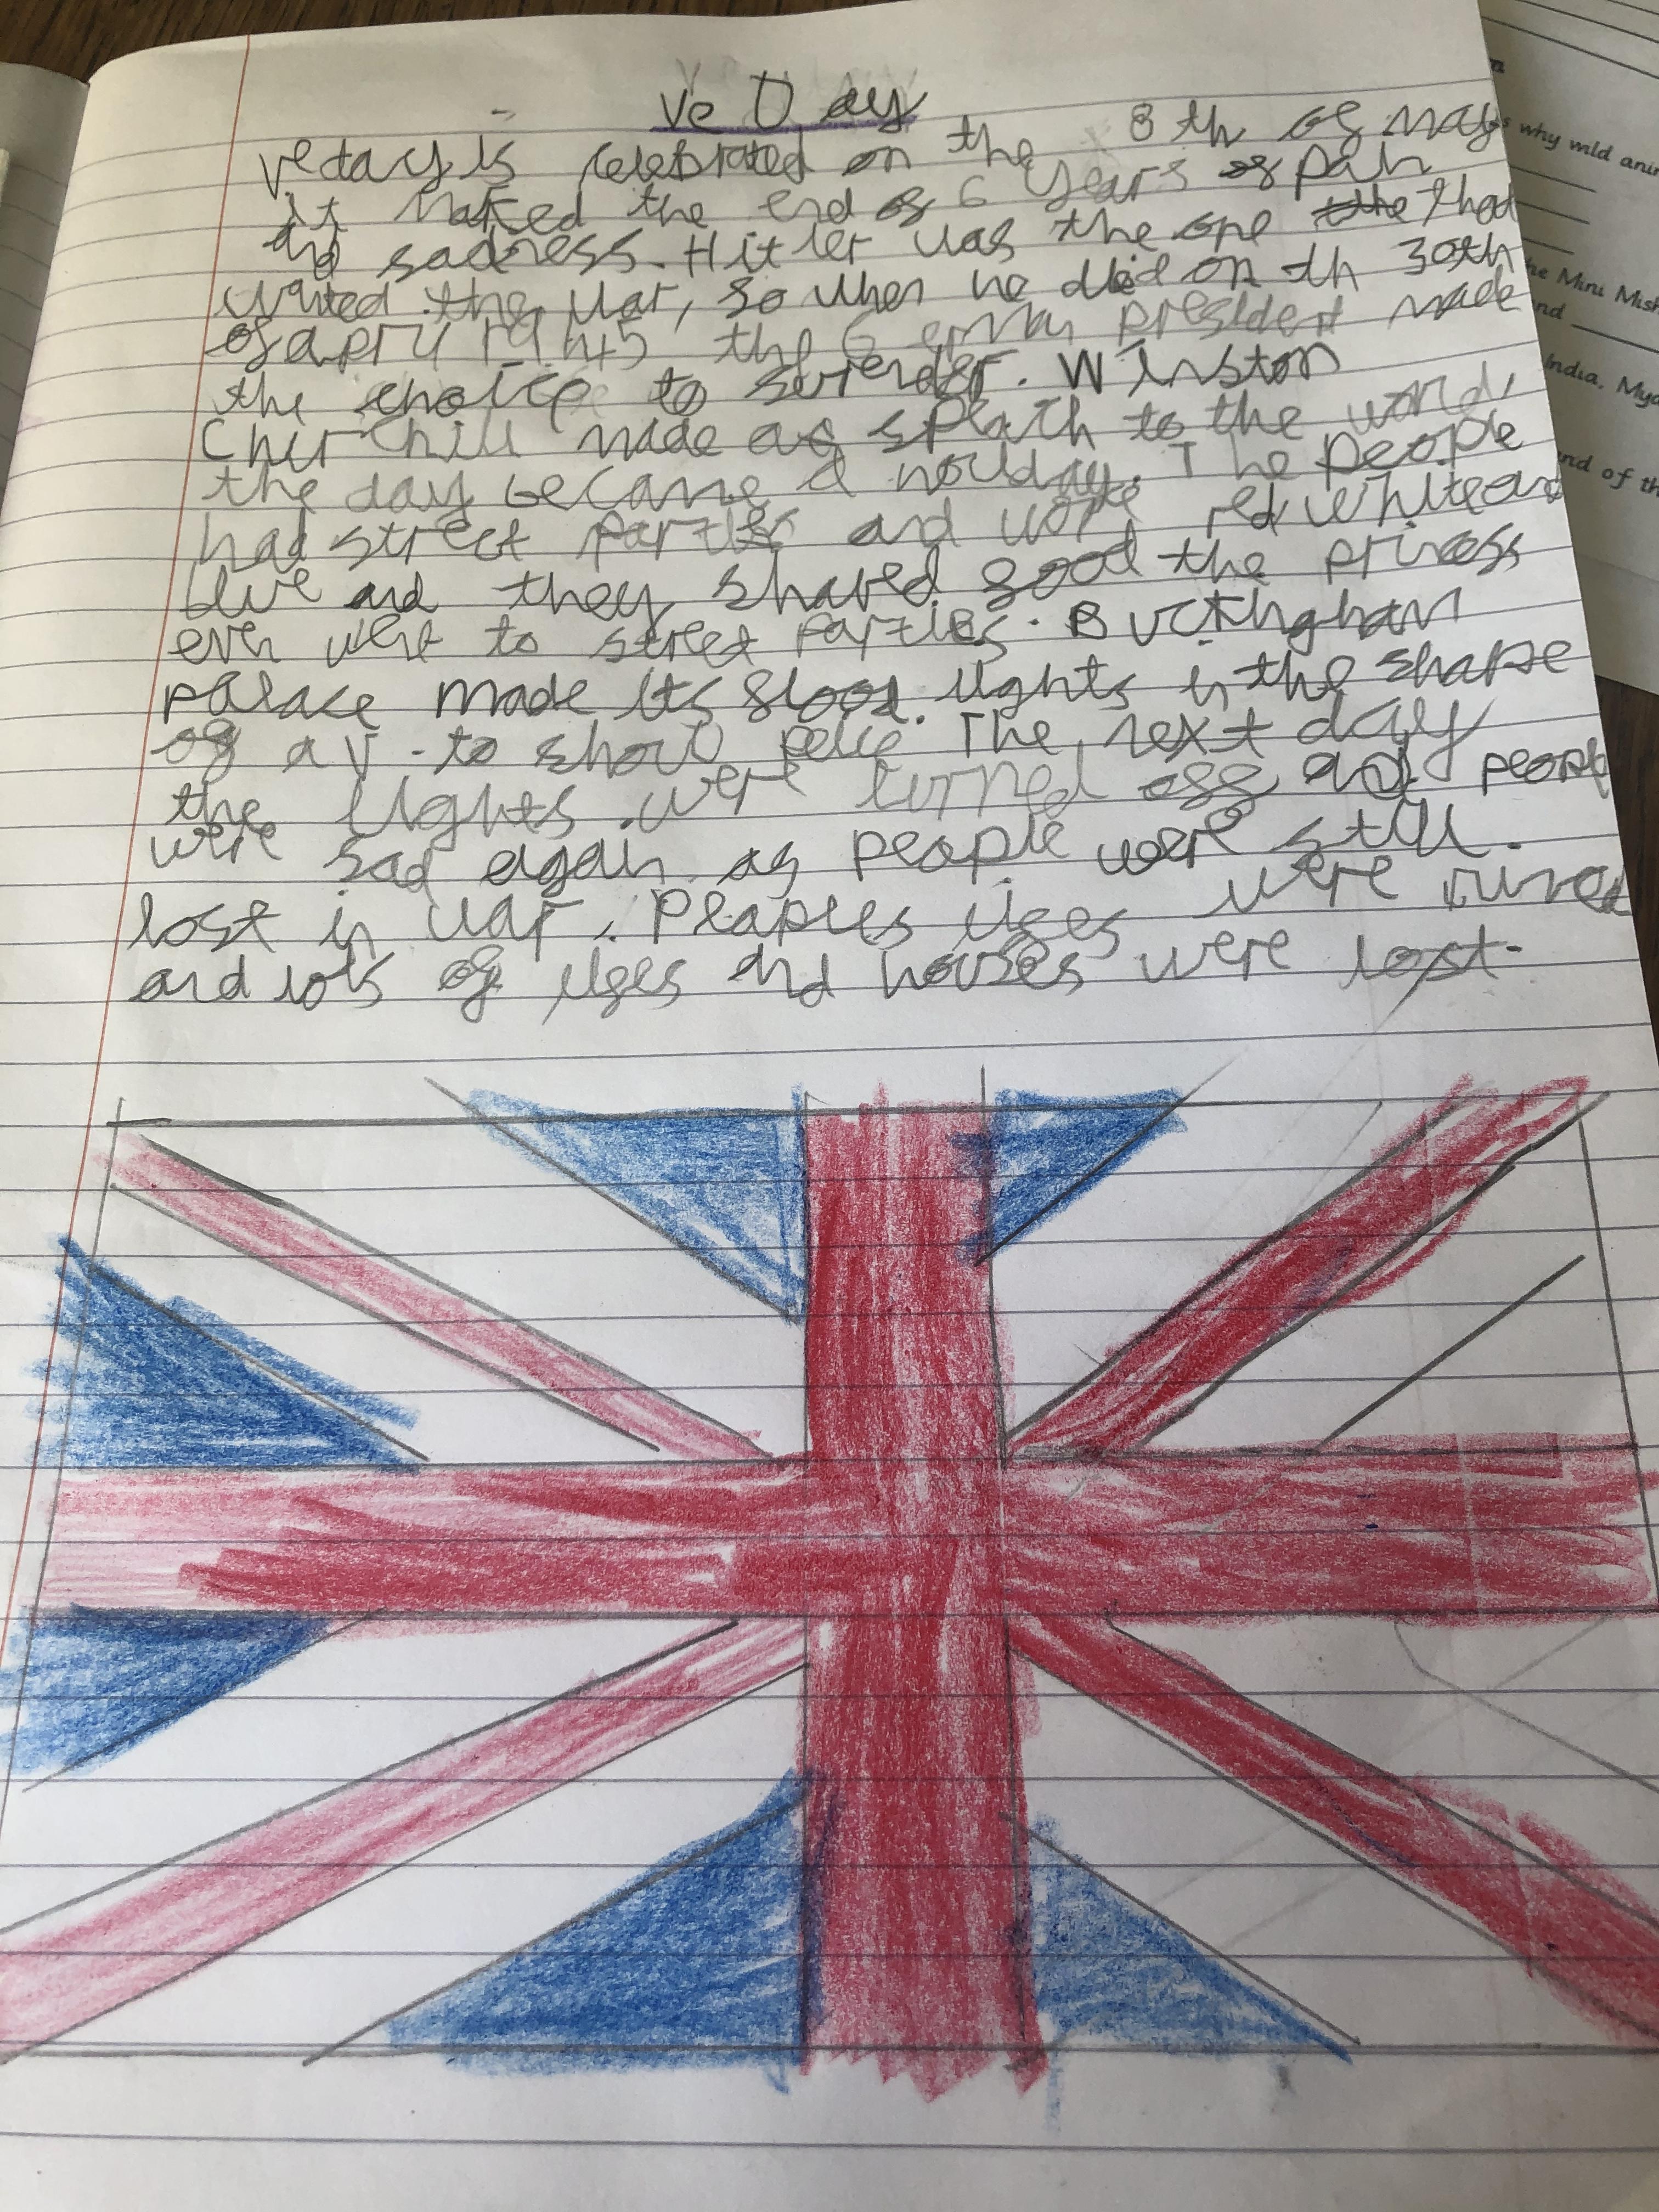 Ve Day
Ve day is celebrated on the 8th of may
it marked the end of 6 years of pain
and sadness. Hitler was the one the that
wanted the war, so when he died on th 30th
of april 1945 the German president made
the choice to surrender. Winston
Churchill made a speach to the world,
the day became a houlday. The people
had street parties and wore red white and
blue and they shared food the princess
even went to street parties. Buckingham
palace made its flood lights in the shape
of a V. to show peice The next day
the lights were turned off and people
were sad again as people were still.
lost in war. Peaples lifes were ruined
and lots of lifes and houses were lost.
why wild ani
the Mini Mish
nd
India, Mya
end of th